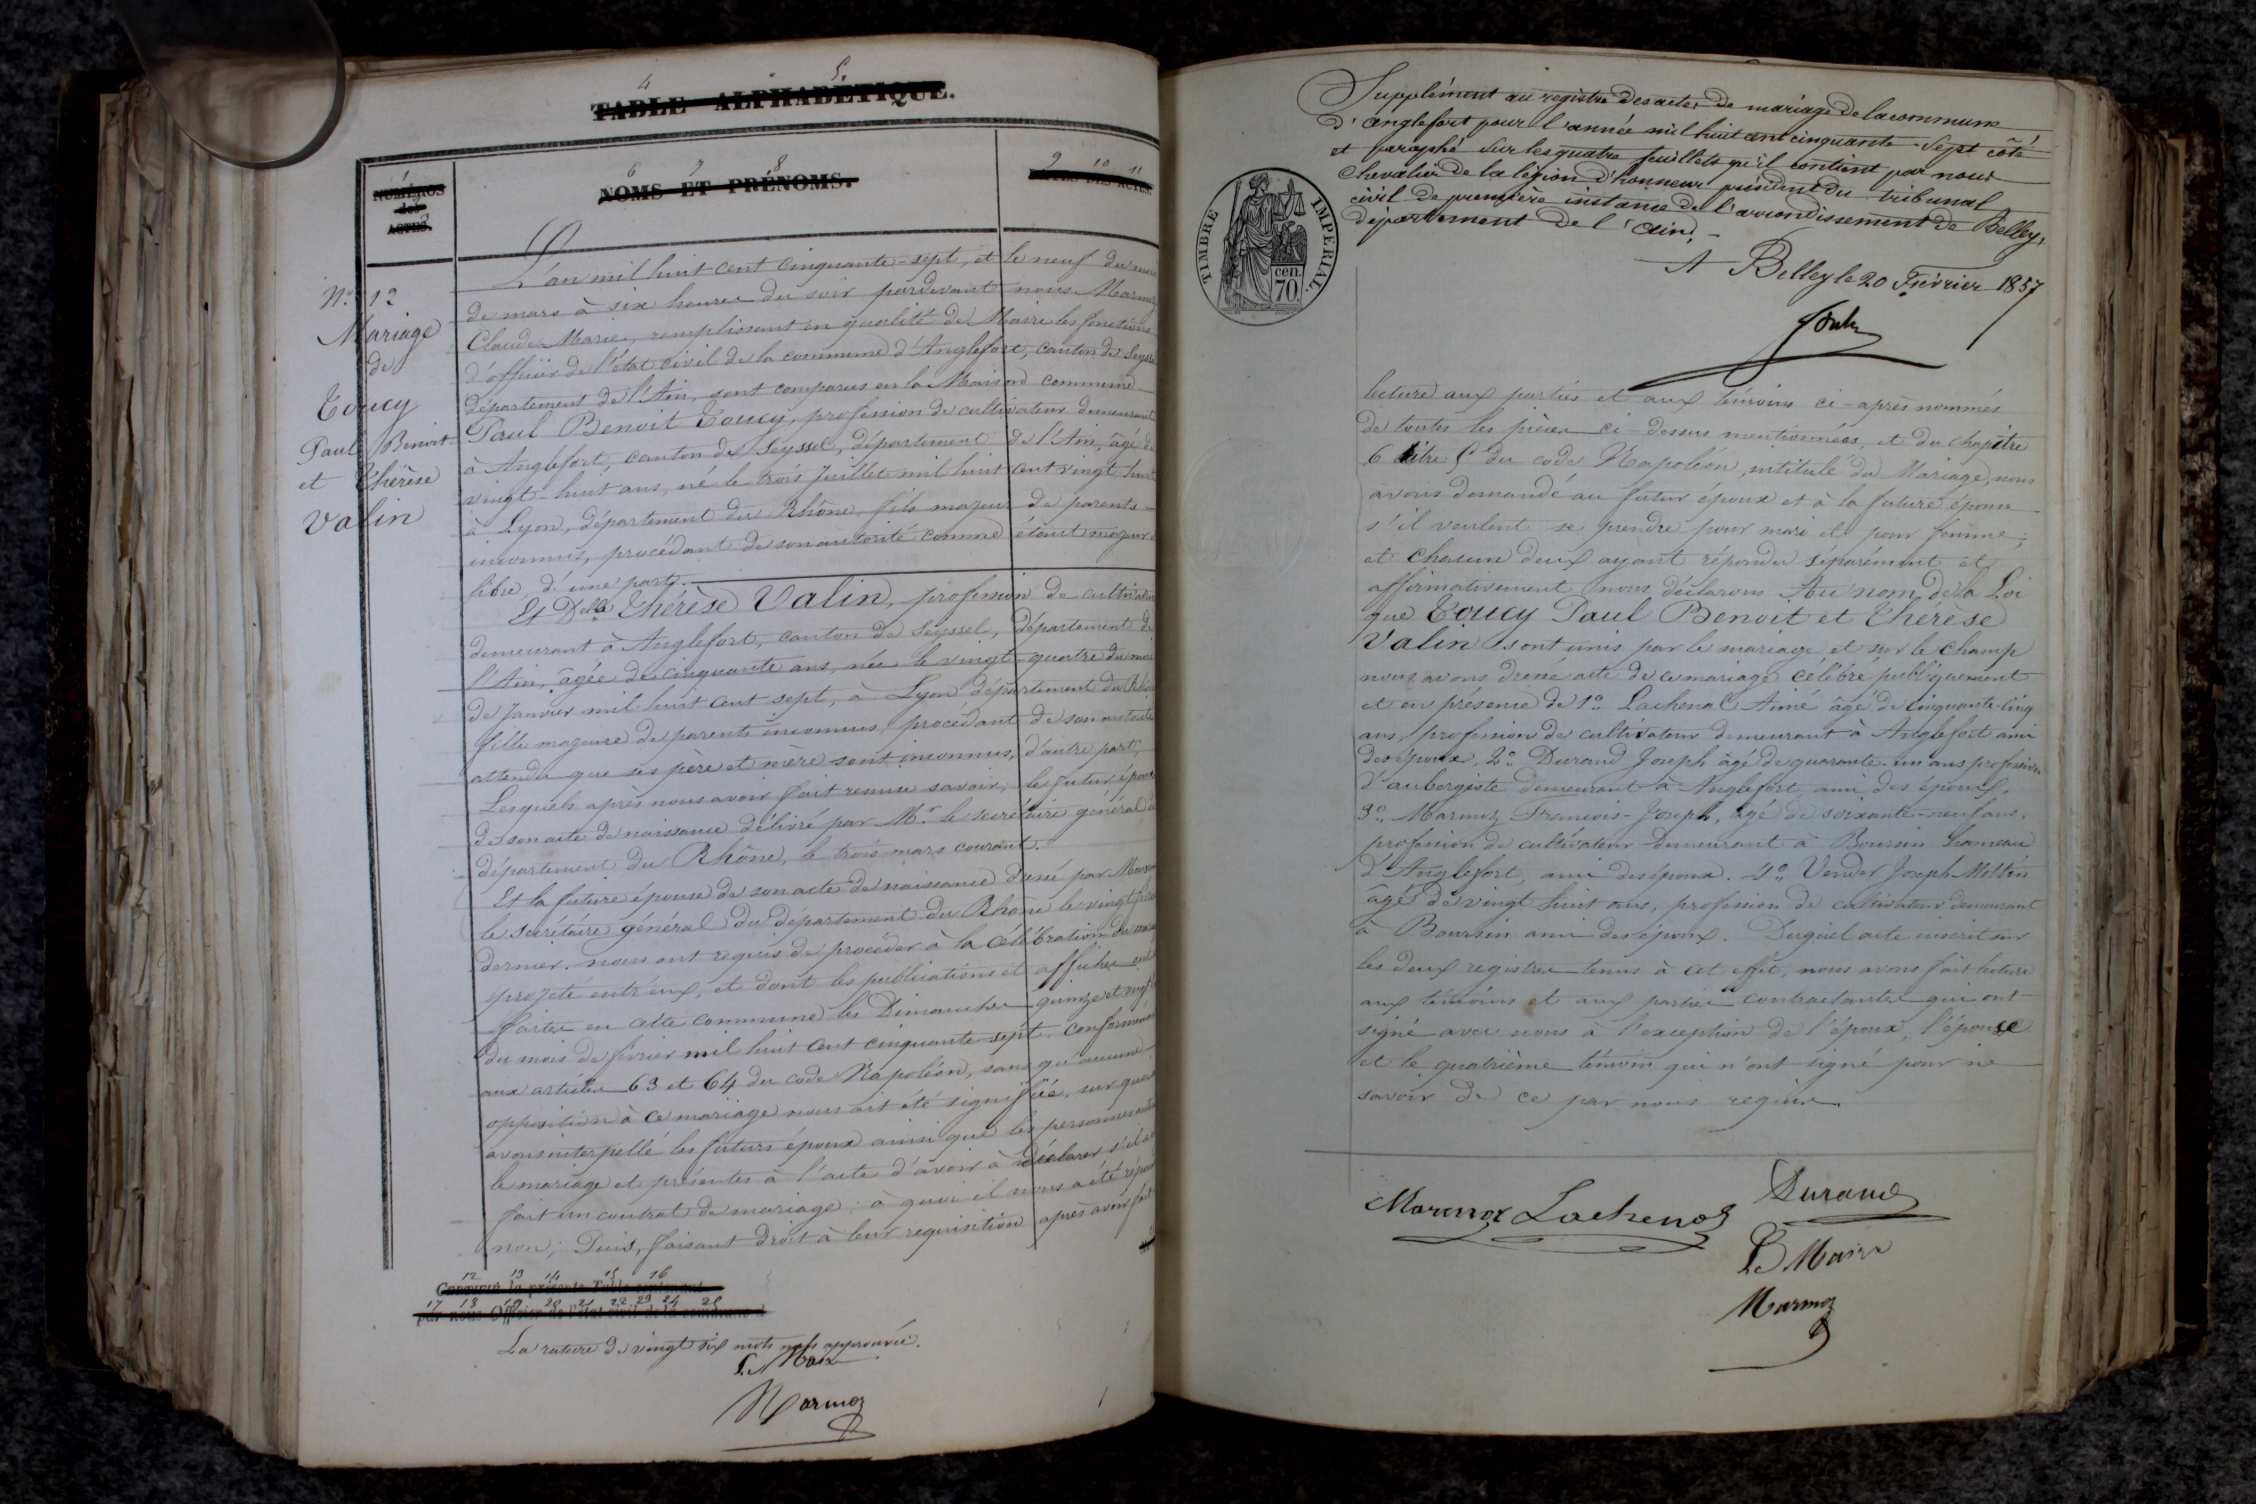 4 5.
TABLE ALPHABÉTIQUE.
1
NUMÉROS
des
ACTES.
6 7 8
NOMS ET PRÉNOMS.
9 10 11
DES ACTES.
N.º 12
Mariage
de
Toucy
Paul Benoit
et Thérèse
Valin
L'an mil huit cent cinquante-sept, et le neuf du mois
de mars à six heures du soir pardevant nous Marmoz
Claude-Marie, remplissant en qualité de Maire les fonctions
d'officier de l'état civil de la commune d'Anglefort, canton de Seyssel
département de l'Ain, sont comparus en la Maison commune
Paul Benoit Toucy, profession de cultivateur demeurant
à Anglefort, canton de Seyssel, département de l'Ain, âgé de
vingt-huit ans, né le trois Juillet mil huit cent vingt huit
à Lyon, département du Rhône, fils majeur de parents
inconnus, procédant de son autorité comme étant majeur et
libre, d'une part.
Et Delle Thérèse Valin, profession de cultivateur
demeurant à Anglefort, canton de Seyssel, département de
l'Ain, âgée de cinquante ans, née le vingt-quatre du mois
de Janvier mil huit cent sept, à Lyon département du Rhône
fille majeure de parents inconnus, procédant de son autorité
attendu que ses père et mère sont inconnus, d'autre part,
Lesquels après nous avoir fait remise savoir, le futur époux
de son acte de naissance délivré par Mr. le secrétaire général du
département du Rhône, le trois mars courant.
Et la future épouse de son acte de naissance dressé par
le secrétaire général du département du Rhône le vingt
dernier. nous ont requis de procéder à la célébration du mariage
projeté entr'eux, et dont les publications et affiches ont été
faites en cette commune les Dimanches quinze et vingt
du mois de février mil huit cent cinquante-sept, conformément
aux articles 63 et 64 du code Napoléon, sans qu'aucune
opposition à ce mariage nous ait été signifiée, sur quoi
avons interpellé les futurs époux ainsi que les personnes
le mariage et présentes à l'acte d'avoir à déclarer s'il a été
fait un contrat de mariage: à quoi il nous a été répondu
non; Puis, faisant droit à leur requisition après avoir fait
12 13 14 15 16
la présente Table
17 18 19 20 21 22 23 24 25
par nous Officier de l'état civil de la commune d
La rature de vingt six mots nuls approuvée.
Le Maire
Marmoz
Supplément au registre des actes de mariage de la commune
d'Anglefort pour l'année mil huit cent cinquante-sept côté
et paraphé sur les quatre feuillets qu'il contient par nous
chevalier de la légion d'honneur président du tribunal
civil de première instance de l'arrondissement de Belley,
département de l'Ain,
A Belley le 20 Février 1857
TIMBRE IMPÉRIAL.
70. cen.
lecture aux parties et aux témoins ci-après nommés
de toutes les pièces ci-dessus mentionnées, et du chapitre
6 titre 5 du code Napoléon, intitulé du Mariage, nous
avons demandé au futur époux et à la future épouse
s'il veulent se prendre pour mari et pour femme,
et chacun deux ayant répondu séparément et
affirmativement nous déclarons Au nom de la Loi
que Toucy Paul Benoit et Thérèse
Valin sont unis par le mariage et sur le champ
nous avons dressé acte de ce mariage célébré publiquement
et en présence de 1º. Lachenal Aimé âgé de cinquante-cinq
ans, profession de cultivateur demeurant à Anglefort ami
des époux, 2º. Durand Joseph âgé de quarante-un ans profession
d'aubergiste demeurant à Anglefort ami des époux,
3º. Marmoz François-Joseph, âgé de soixante-neuf ans,
profession de cultivateur demeurant à Boursin hameau
d'Anglefort, ami des époux. 4º. Joseph
âgé de vingt huit ans, profession de cultivateur demeurant
à Boursin ami des époux. Duquel acte inscrit sur
les deux registres tenus à cet effet, nous avons fait lecture
aux témoins et aux parties contractantes qui ont
signé avec nous à l'exception de l'époux, l'épouse
et le quatrième témoin qui n'ont signé pour ne
savoir de ce par nous requis
Marmoz Lachenal Durand
Le Maire
Marmoz